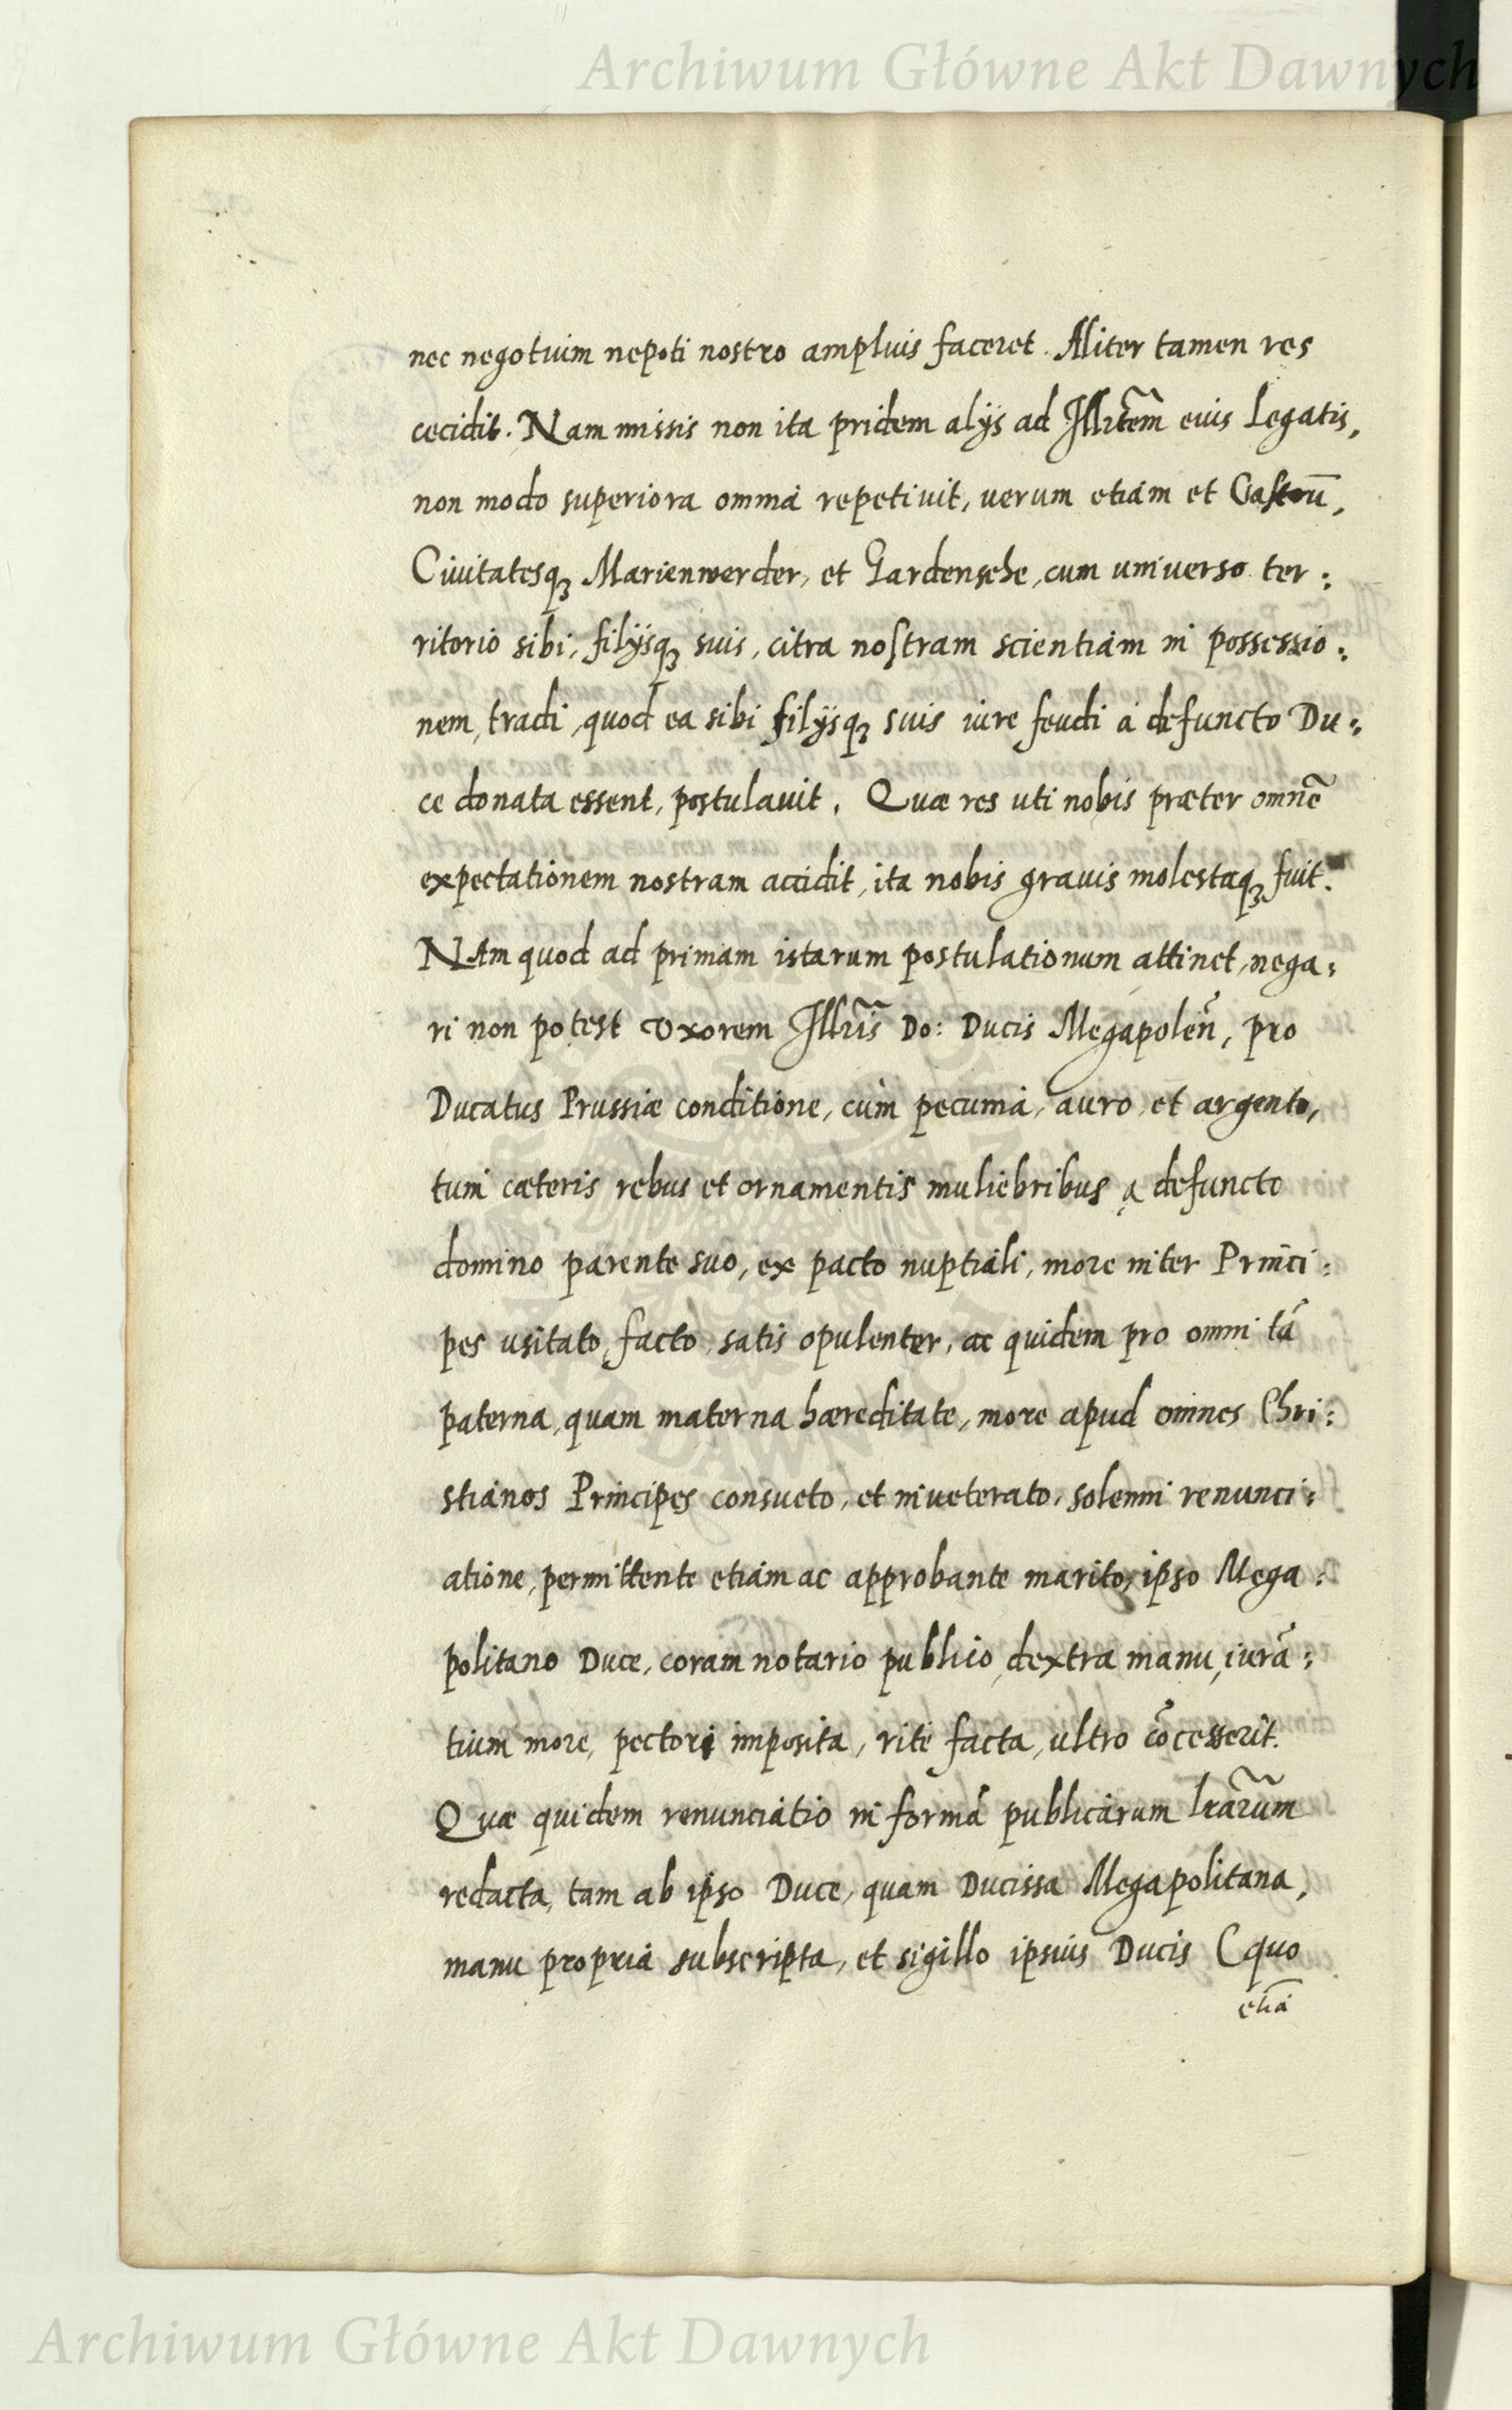 Archiwum Główne Akt Dawnych
nec negotium nepoti nostro amplius faceret. Aliter tamen res
cecidit. Nam missis non ita pridem alijs ad Illrtem̃ eius Legatis,
non modo superiora omnia repetiuit, uerum etiam et Castrũ,
Ciuitatesqꝫ Marienwerder, et Gardensehe, cum uniuerso ter:
ritorio sibi, filijsqꝫ suis, citra nostram scientiam in possessio:
nem, tradi, quod ea sibi filijsqꝫ suis iure feudi á defuncto Du:
ce donata essent, postulauit. Quæ res uti nobis præter omnẽ
expectationem nostram accidit, ita nobis grauis molestaqꝫ fuit.
NAm quod ad primam istarum postulationum attinet, nega:
ri non potest Vxorem Illrĩs Do: Ducis Megapoleñ, pro
Ducatus Prussiæ conditione, cùm pecunia, auro, et argento,
tum cæteris rebus et ornamentis muliebribus a defuncto
domino parente suo, ex pacto nuptiali, more inter Princi:
pes usitato, facto, satis opulenter, ac quidem pro omni tã
paterna, quam materna hæreditate, more apud omnes Chri:
stianos Principes consueto, et inueterato, solenni renunci:
atione, permittente etiam ac approbante marito, ipso Mega:
politano Duce, coram notario publico, dextra manu, iurã:
tium more, pectori imposita, rite facta, ultro cõcesserit.
Quæ quidem renunciatio in formã publicarum lrãrum
redacta, tam ab ipso Duce, quam Ducissa Megapolitana,
manu propria subscripta, et sigillo ipsius Ducis (quo
etiã
Archiwum Główne Akt Dawnych